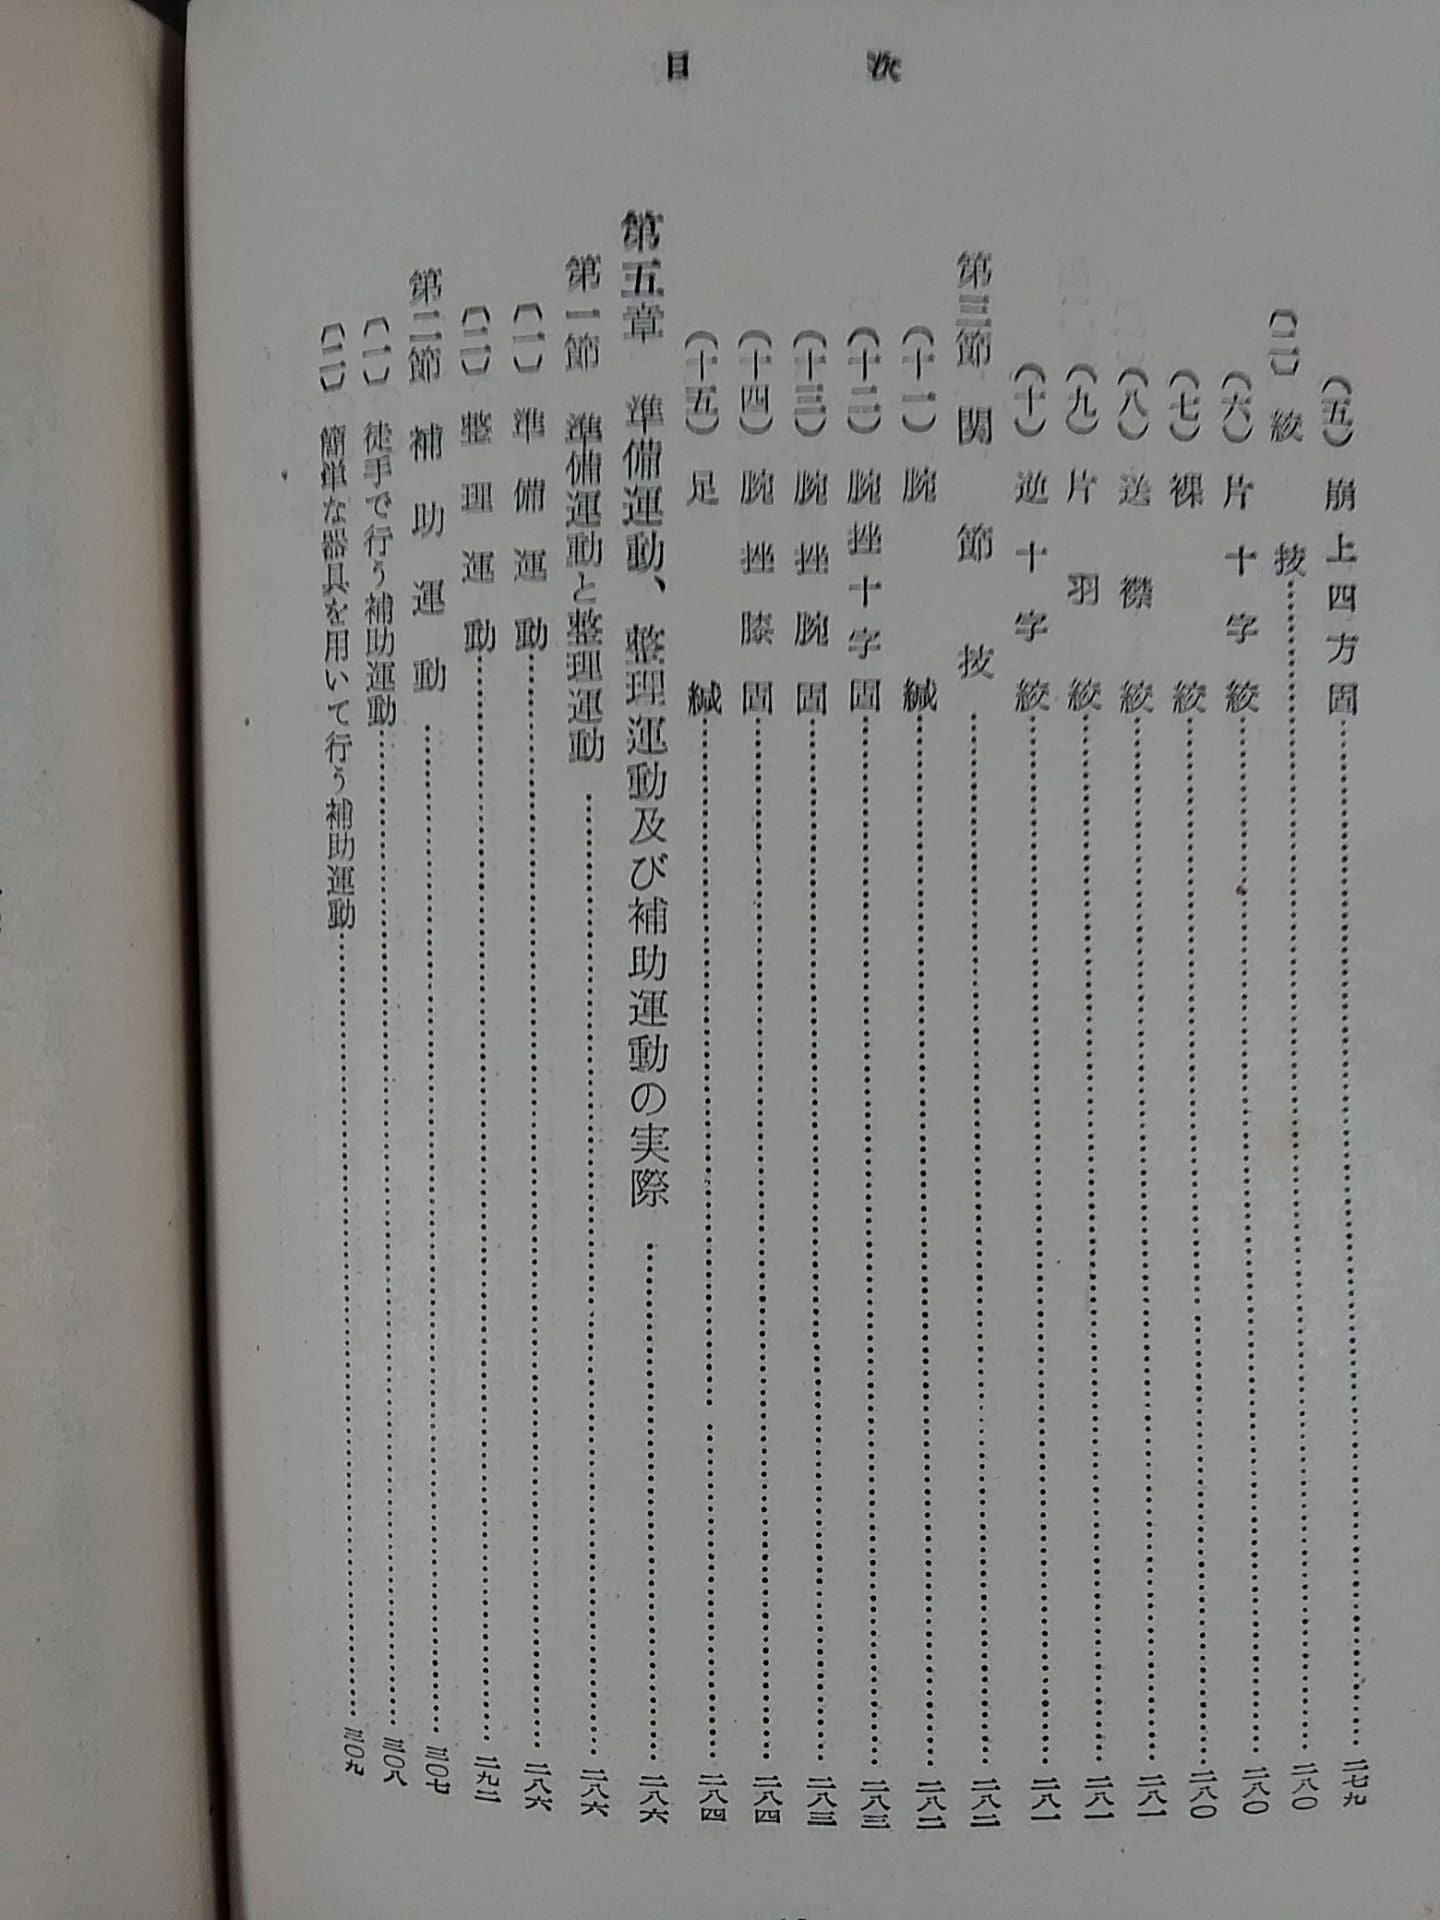 目次
(五) 崩上四方固……二七九
(二) 絞技……二八〇
(六) 片十字絞……二八〇
(七) 裸絞……二八〇
(八) 送襟絞……二八一
(九) 片羽絞……二八一
(十) 逆十字絞……二八一
第三節 関節技……二八二
(十一) 腕緘……二八二
(十二) 腕挫十字固……二八三
(十三) 腕挫腕固……二八三
(十四) 腕挫膝固……二八四
(十五) 足緘……二八四
第五章 準備運動、整理運動及び補助運動の実際……二八六
第一節 準備運動と整理運動……二八六
(一) 準備運動……二八六
(二) 整理運動……二九二
第二節 補助運動……三〇七
(一) 徒手で行う補助運動……三〇八
(二) 簡単な器具を用いて行う補助運動……三〇九